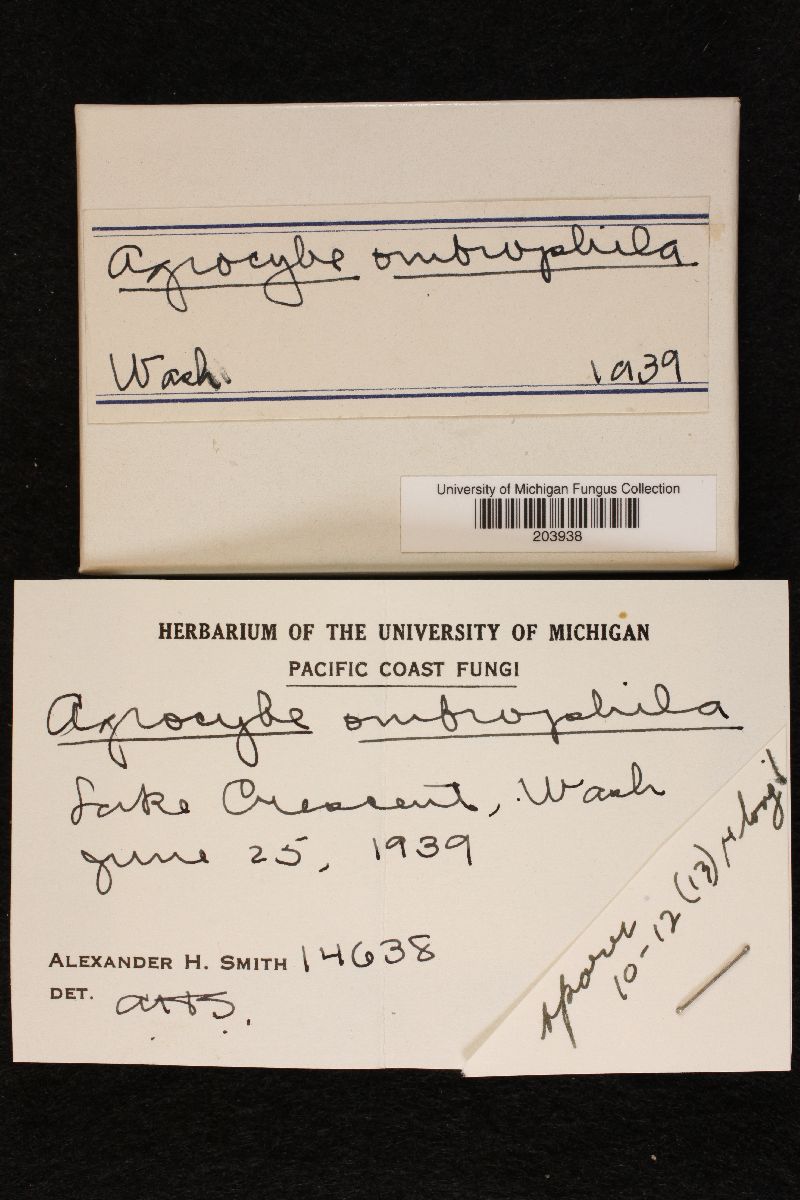 Agrocybe ombrophila
Wash. 1939
University of Michigan Fungus Collection
203938
HERBARIUM OF THE UNIVERSITY OF MICHIGAN
PACIFIC COAST FUNGI
Agrocybe ombrophila
Lake Crescent, Wash
June 25, 1939
ALEXANDER H. SMITH 14638
DET. AHS.
spores
10-12 (13) µ long!